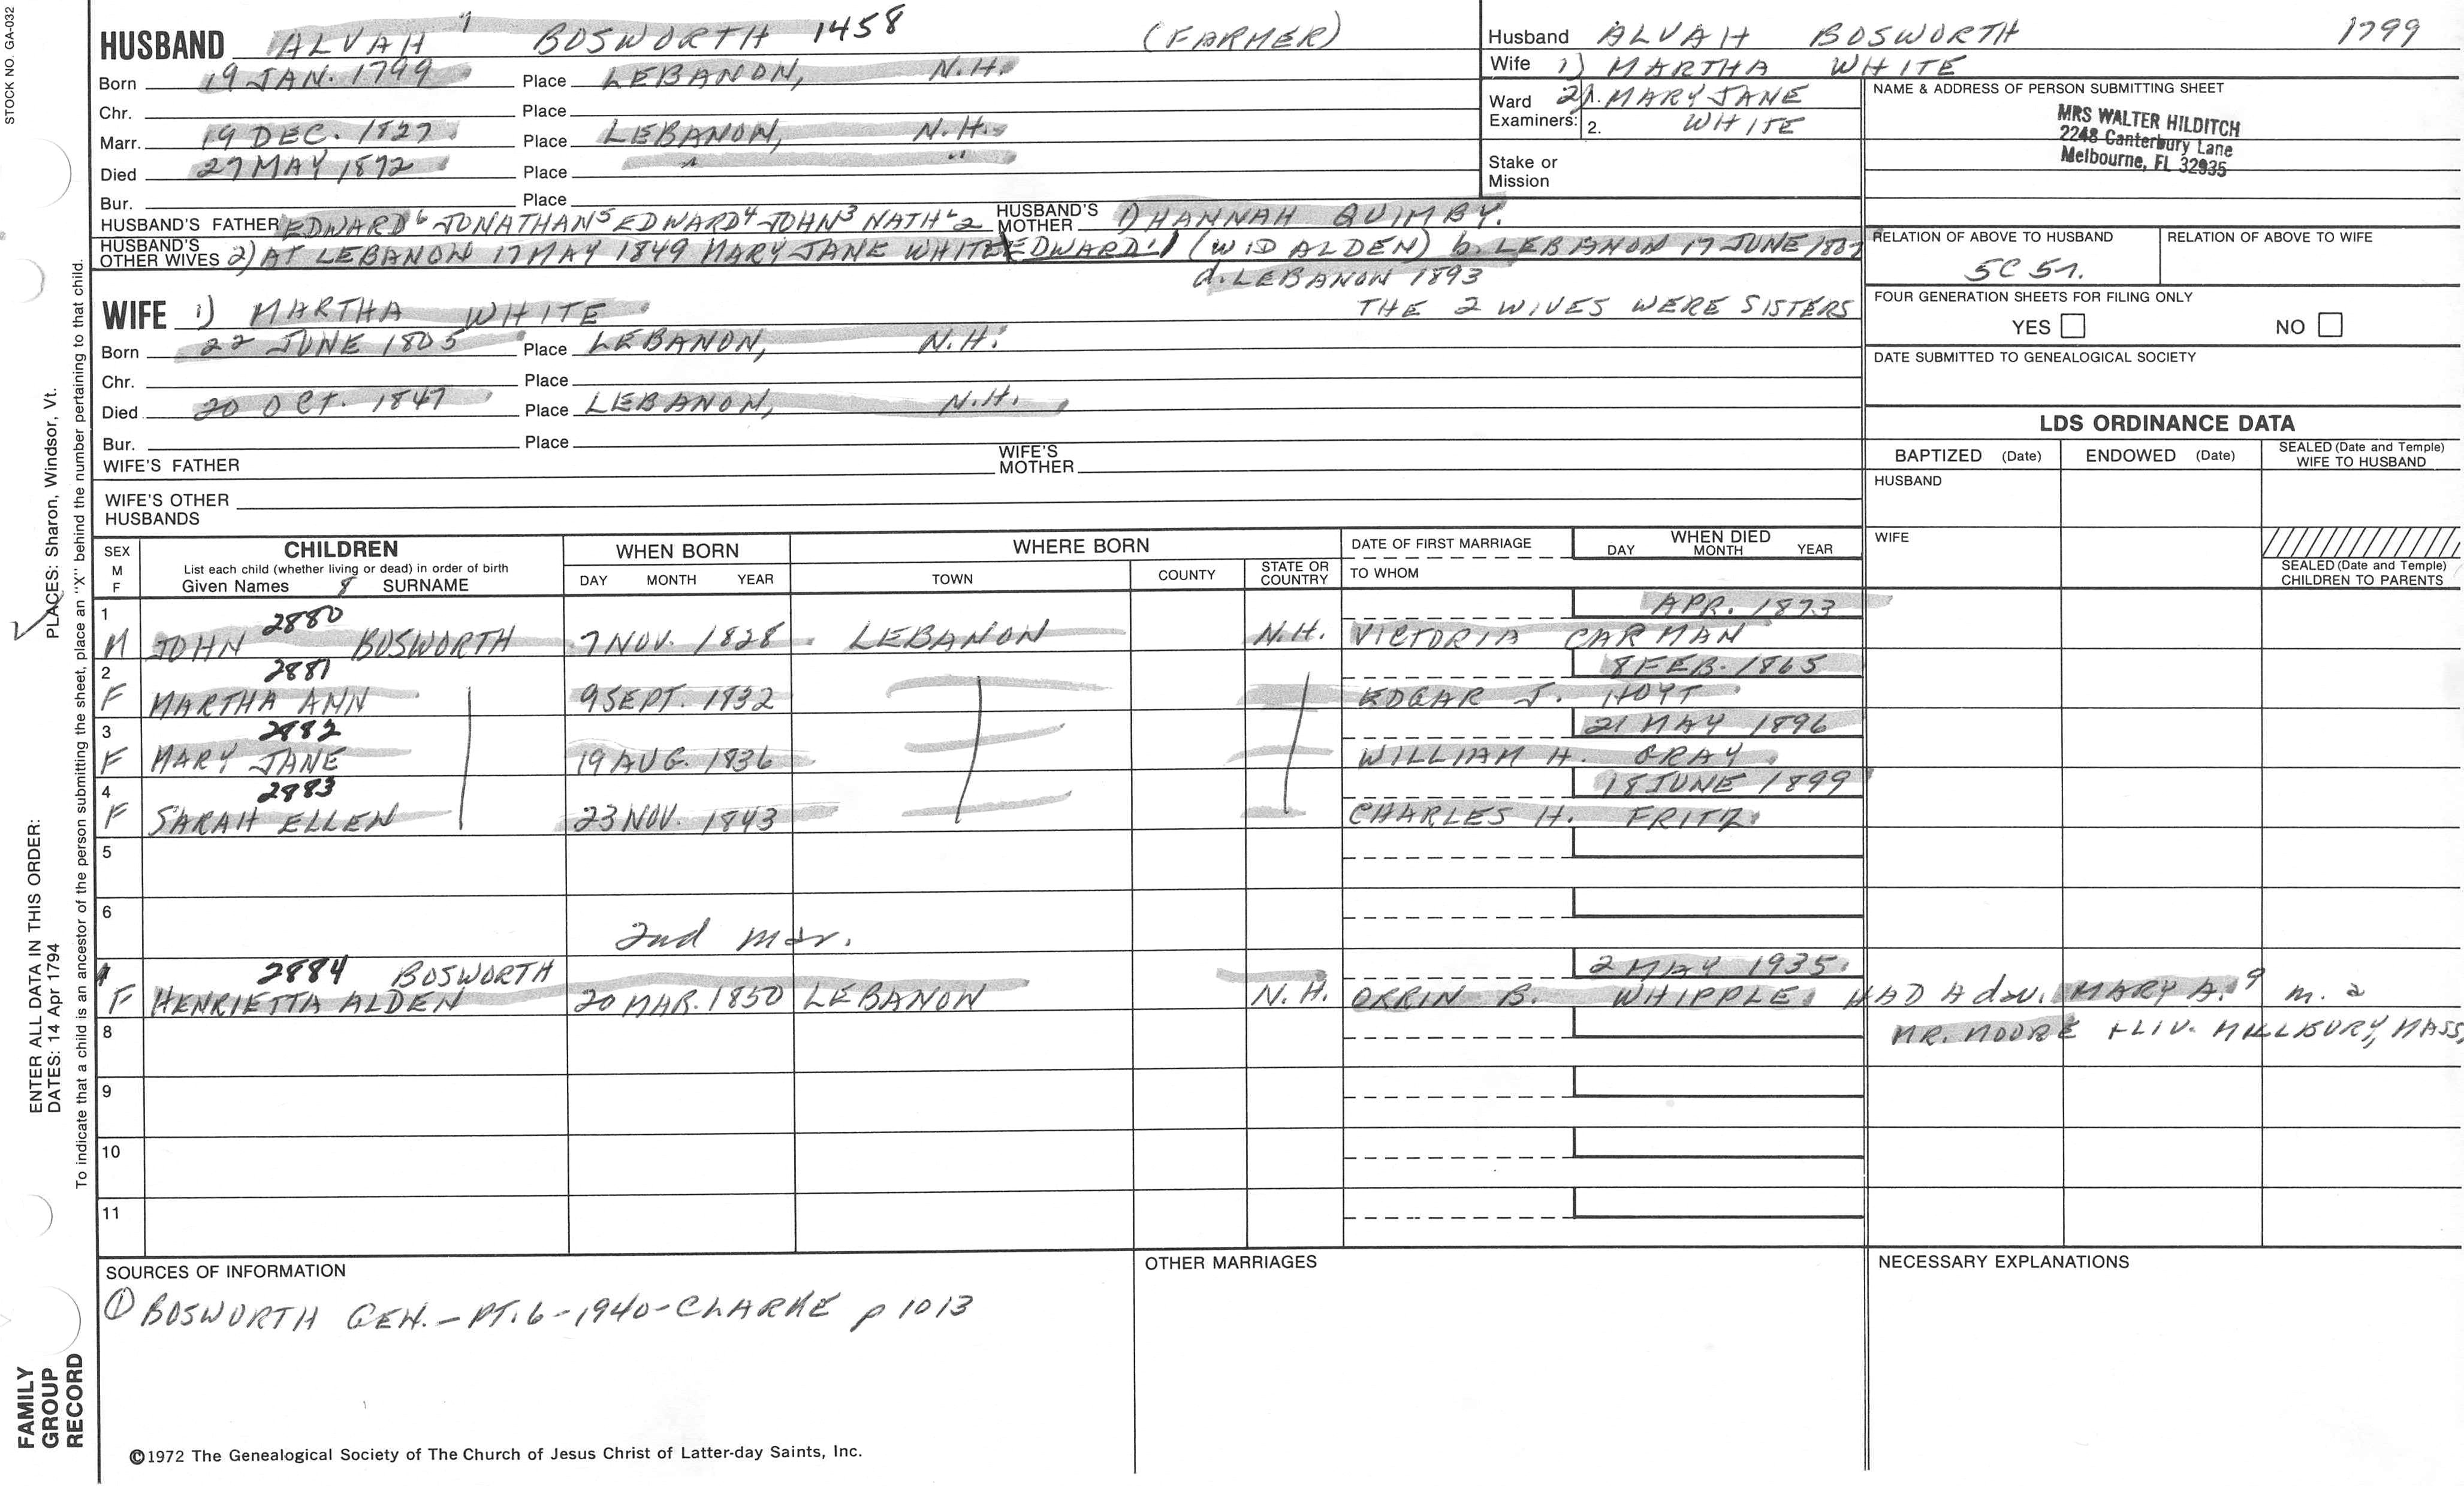 STOCK NO. GA-032
HUSBAND ALVAH 7 BOSWORTH 1458 (FARMER)
Born 19 JAN. 1799 Place LEBANON, N.H.
Chr. Place
Marr. 19 DEC. 1827 Place LEBANON, N.H.
Died 27 MAY 1872 Place " "
Bur. Place
HUSBAND'S FATHER EDWARD 6 JONATHAN 5 EDWARD 4 JOHN 3 NATH'L 2 HUSBAND'S MOTHER 1) HANNAH QUIMBY.
HUSBAND'S OTHER WIVES 2) AT LEBANON 17 MAY 1849 MARY JANE WHITE EDWARD 1 (WID ALDEN) b. LEBANON 17 JUNE
d. LEBANON 1893
THE 2 WIVES WERE SISTERS
WIFE 1) MARTHA WHITE
Born 22 JUNE 1805 Place LEBANON, N.H.
Chr. Place
Died 20 OCT. 1847 Place LEBANON, N.H.
Bur. Place
WIFE'S FATHER WIFE'S MOTHER
WIFE'S OTHER HUSBANDS
Husband ALVAH BOSWORTH 1799
Wife 1) MARTHA WHITE
Ward Examiners: 2) 1. MARY JANE
2. WHITE
Stake or Mission
NAME & ADDRESS OF PERSON SUBMITTING SHEET
MRS WALTER HILDITCH
2248 Canterbury Lane
Melbourne, FL 32935
RELATION OF ABOVE TO HUSBAND RELATION OF ABOVE TO WIFE
5C 5r.
FOUR GENERATION SHEETS FOR FILING ONLY
YES NO
DATE SUBMITTED TO GENEALOGICAL SOCIETY
LDS ORDINANCE DATA
BAPTIZED (Date) ENDOWED (Date) SEALED (Date and Temple) WIFE TO HUSBAND
HUSBAND
WIFE
SEALED (Date and Temple) CHILDREN TO PARENTS
SEX M F
CHILDREN
List each child (whether living or dead) in order of birth
Given Names 8 SURNAME
WHEN BORN
DAY MONTH YEAR
WHERE BORN
TOWN COUNTY STATE OR COUNTRY
DATE OF FIRST MARRIAGE
TO WHOM
WHEN DIED
DAY MONTH YEAR
1 2880 APR. 1873
M JOHN BOSWORTH 7 NOV. 1828 LEBANON N.H. VICTORIA CARMAN
2 2881 8 FEB. 1865
F MARTHA ANN 9 SEPT. 1832 EDGAR J. HOYT
3 2882 21 MAY 1896
F MARY JANE 19 AUG. 1836 WILLIAM H. GRAY
4 2883 18 JUNE 1899
F SARAH ELLEN 23 NOV. 1843 CHARLES H. FRITZ
5
6
2nd mar.
1 2884 BOSWORTH 2 MAY 1935
F HENRIETTA ALDEN 20 MAR. 1850 LEBANON N.H. ORRIN B. WHIPPLE, HAD A dau. MARY A. 9 m. a
8 MR. MOORE + LIV. MILLBURY, MASS
9
10
11
SOURCES OF INFORMATION
① BOSWORTH GEN. - PT. 6 - 1940 - CLARKE p 1013
OTHER MARRIAGES
NECESSARY EXPLANATIONS
©1972 The Genealogical Society of The Church of Jesus Christ of Latter-day Saints, Inc.
PLACES: Sharon, Windsor, Vt.
To indicate that a child is an ancestor of the person submitting the sheet, place an "X" behind the number pertaining to that child.
ENTER ALL DATA IN THIS ORDER:
DATES: 14 Apr 1794
FAMILY GROUP RECORD